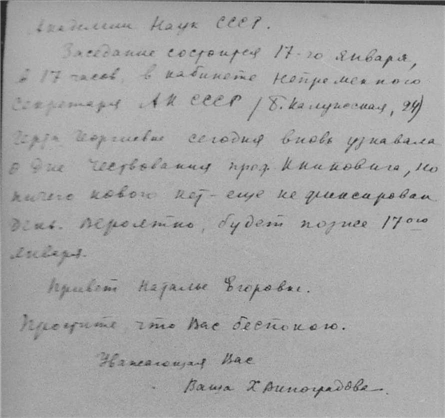 Академии Наук СССР.
Заседание состоится 17-го января,
в 17 часов, в кабинете Непременного
Секретаря АН СССР / Б. Калужская,
Георгиевна сегодня вновь узнавала
о дне чествования проф. Книповича, но
ничего нового нет - еще не фиксирован
день. Вероятно, будет позже 17-го
января.
Привет Наталье Егоровне.
Простите, что Вас беспокою.
Уважающая Вас
Ваша Х Виноградова